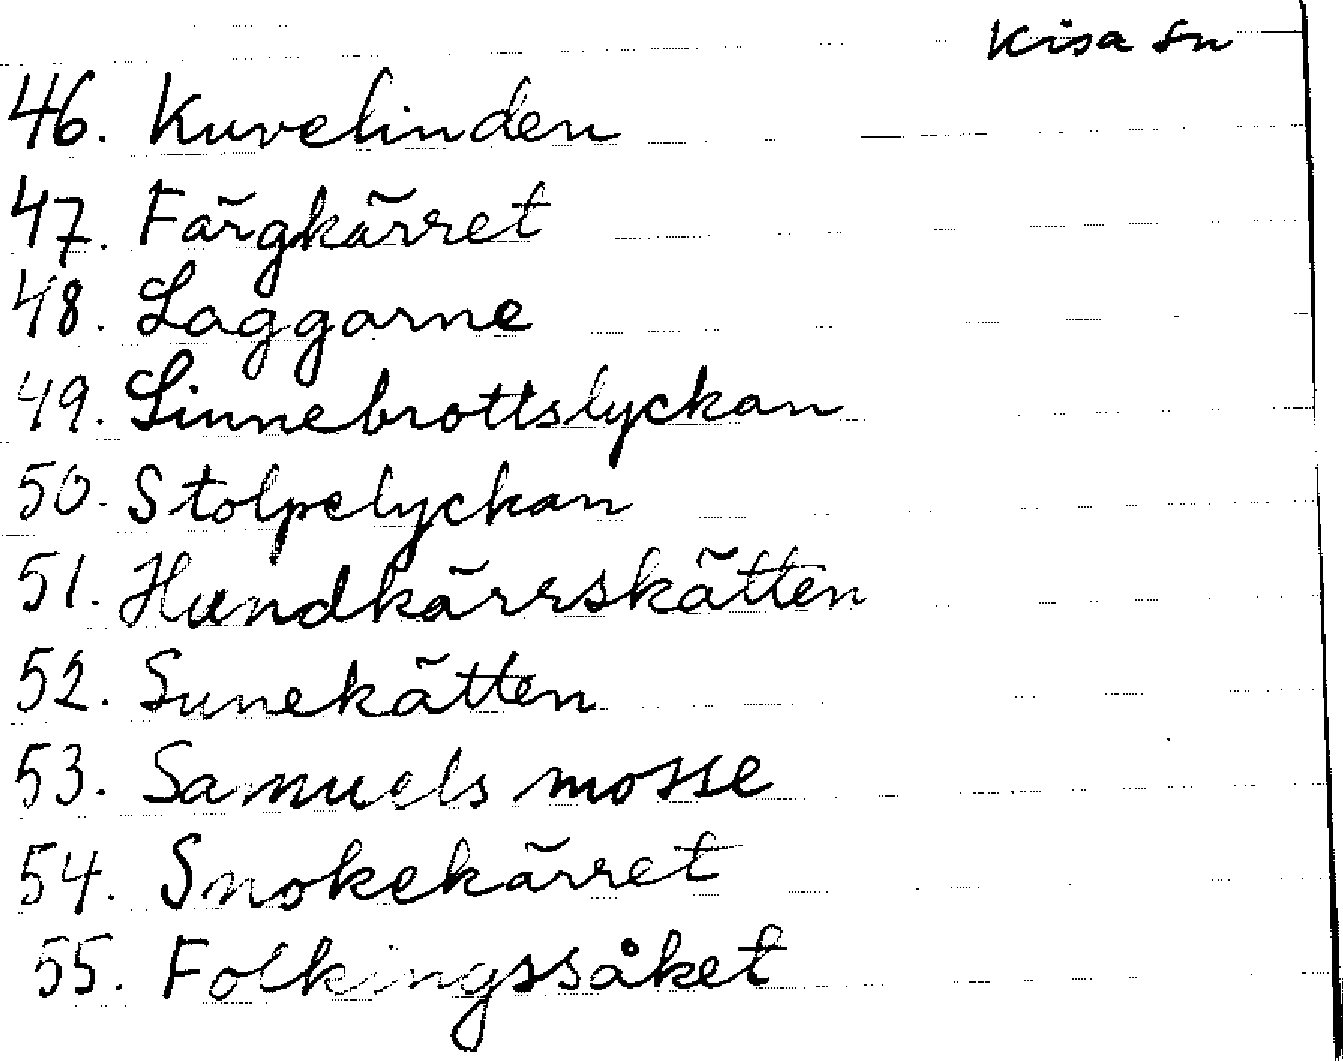 Kisa sn
46. Kuvelinden
47. Färgkärret
48. Laggarne
49. Linnebrottslyckan
50. Stolpelyckan
51. Hundkärrskätten
52. Sunekätten
53. Samuels mosse
54. Snokekärret
55. Folkingssåket